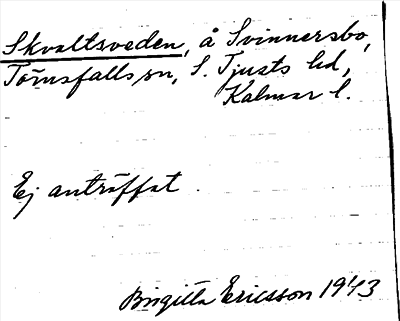 Skvaltsveden, å Svinnersbo,
Törnsfalls sn, S. Tjusts hd,
Kalmar l.
Ej anträffat.
Birgitta Ericsson 1943